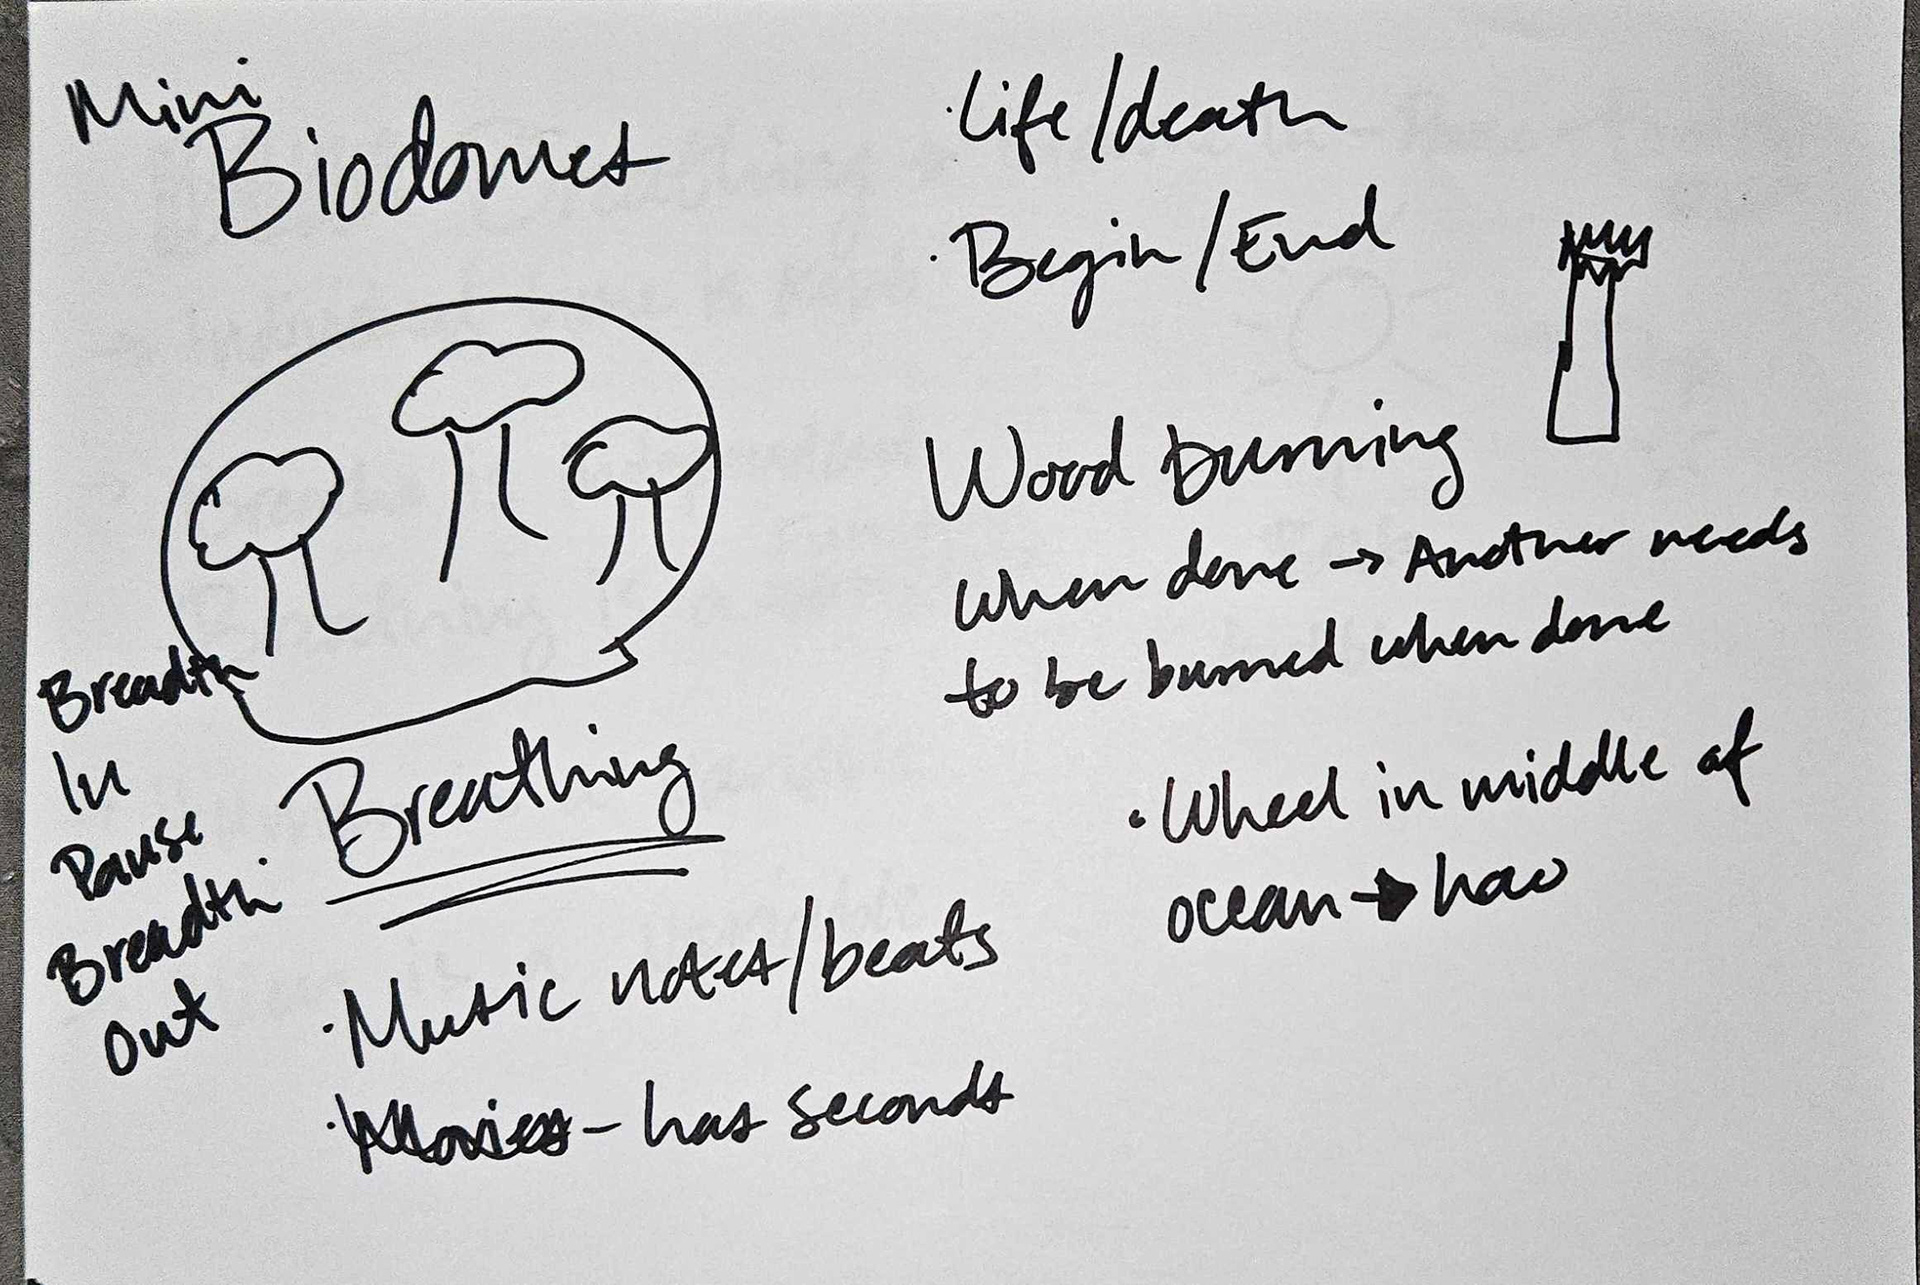 Mini
Biodomes
Breadth
In
Pause
Breadth
Out
Breathing
· Music notes/beats
· Movies - has seconds
· Life/death
· Begin/End
Wood burning
When done → Another needs
to be burned when done
· Wheel in middle of
ocean → how